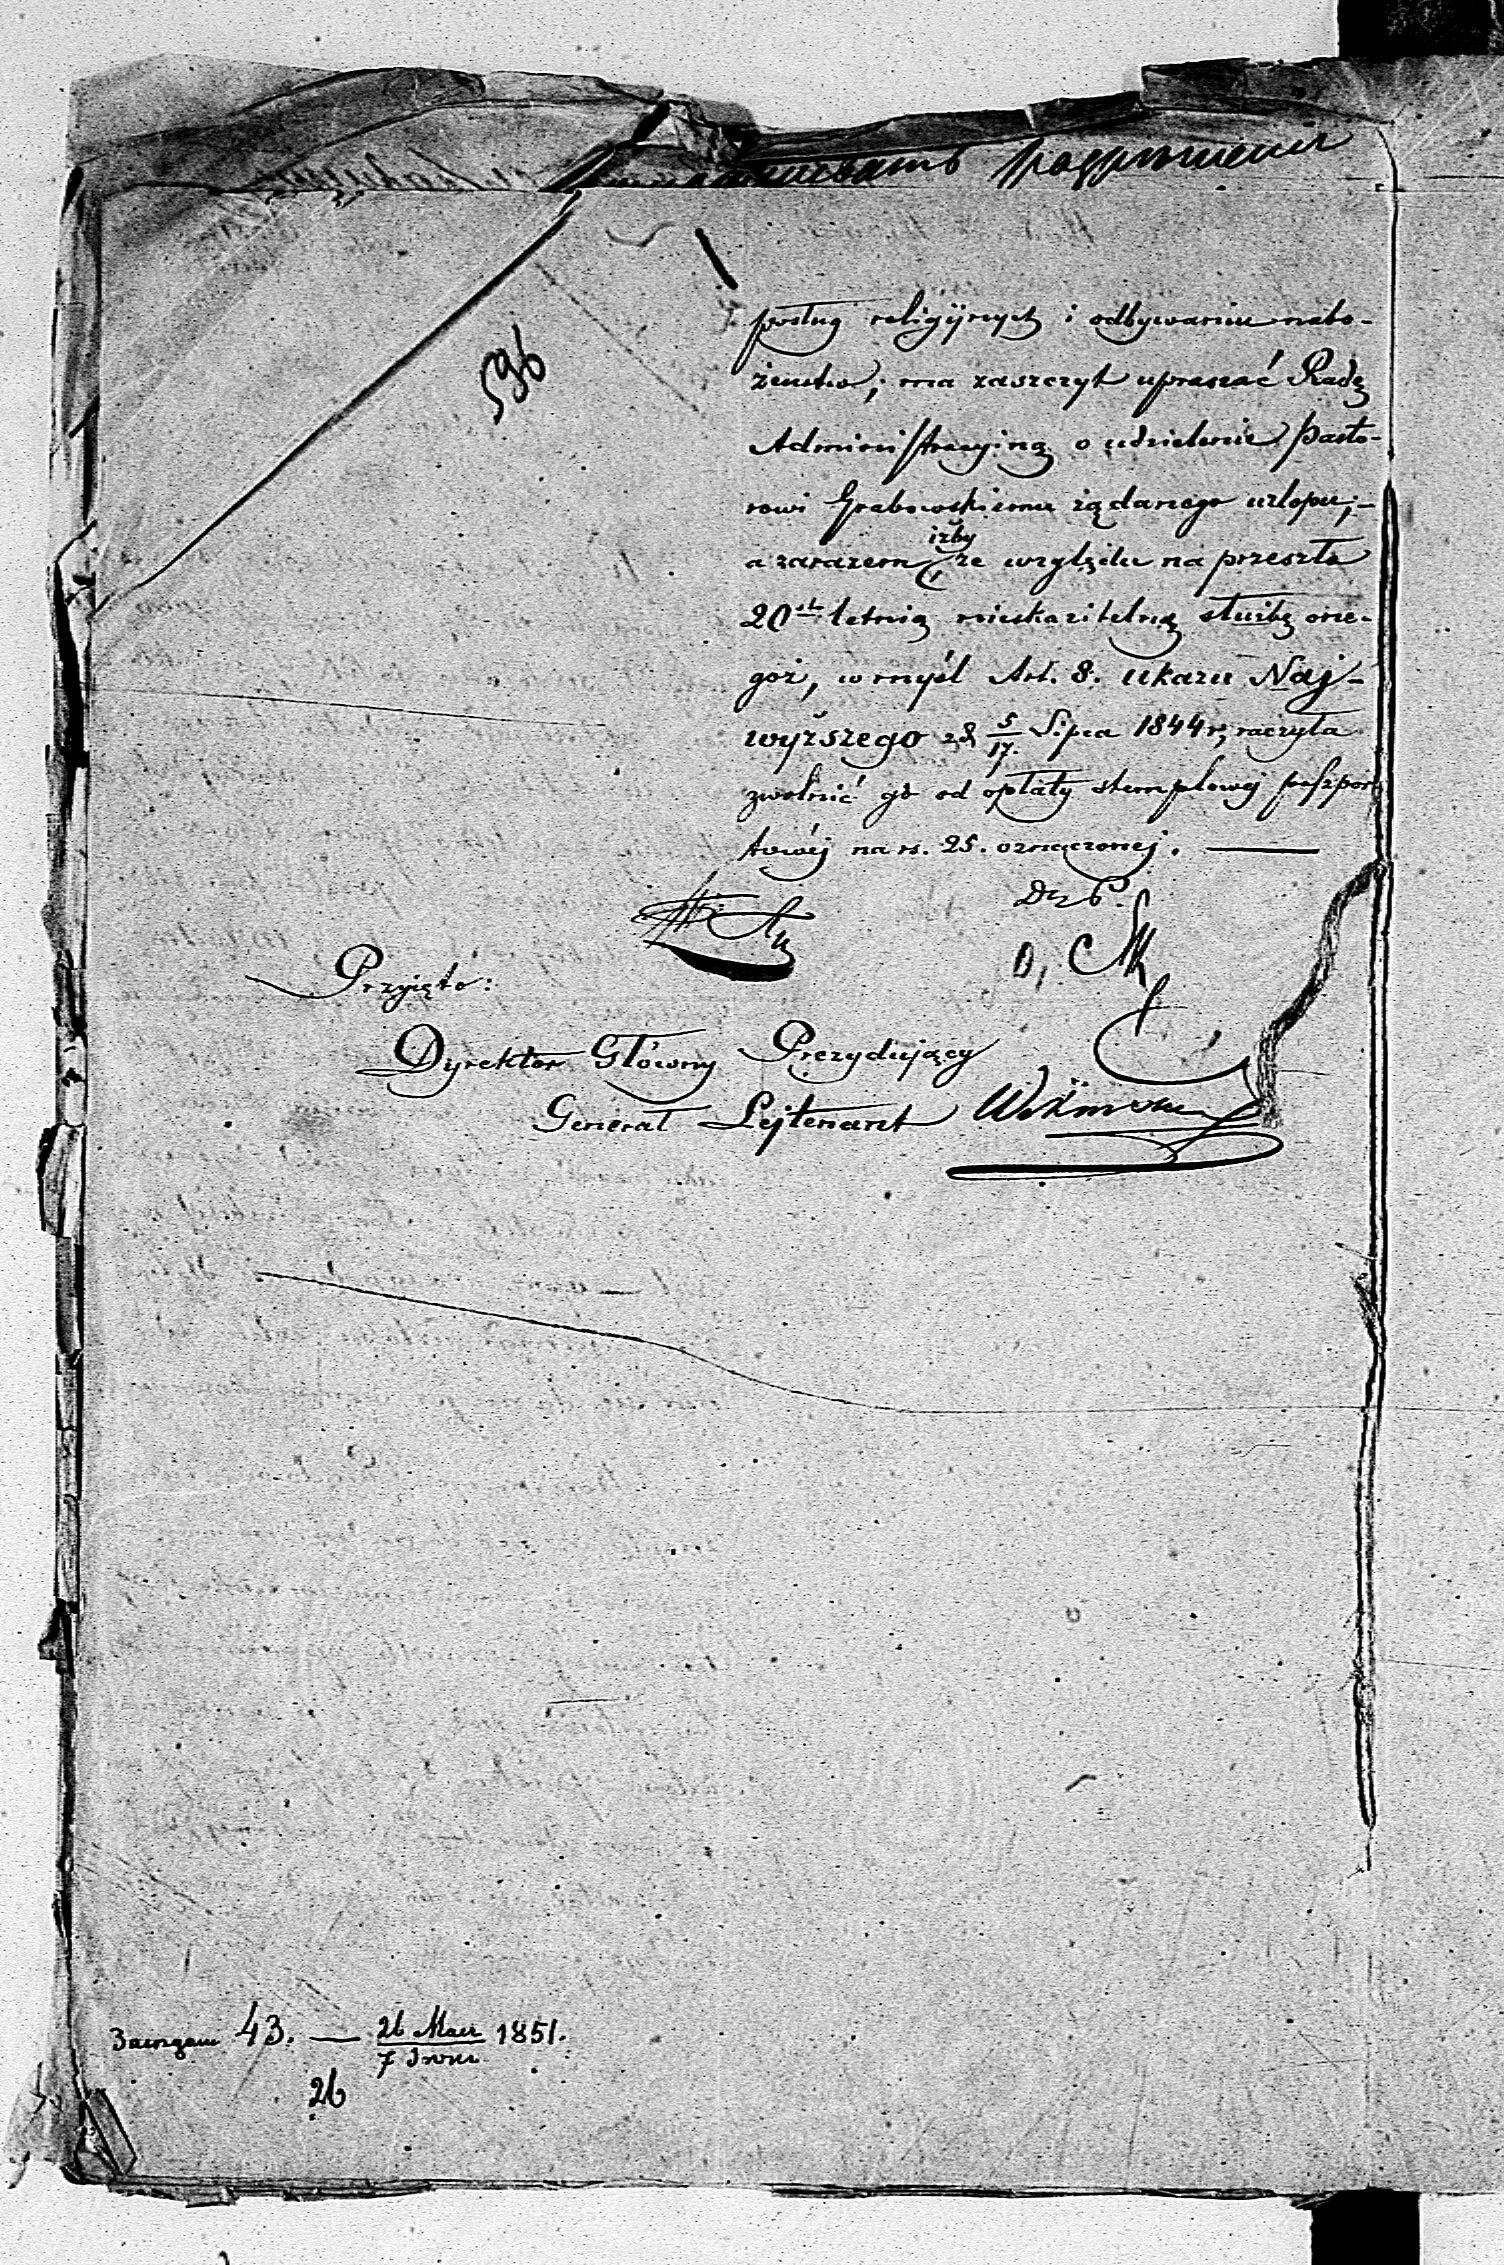 596
posług religijnych i odbywaniu nabo-
żeństw, ma zaszczyt upraszać Radę
Administracyjną o udzielenie Pasto-
rowi Grabowskiemu żądanego urlopu; –
iżby
a zarazem ze względu na przeszło
20st letnią nieskazitelną służbę one-
goż, w myśl Art. 8. ukazu Naj-
wyższego z d. 5/17. Lipca 1844 r, raczyła
zwolnić go od opłaty stemplowej paszpor
towéj na rs. 25. oznaczonej. —
Dyr.
Przyięto:
Dyrektor Główny Prezydujący
Generał Lejtenant
43. — 26 Мая / 7 Июня 1851.
26